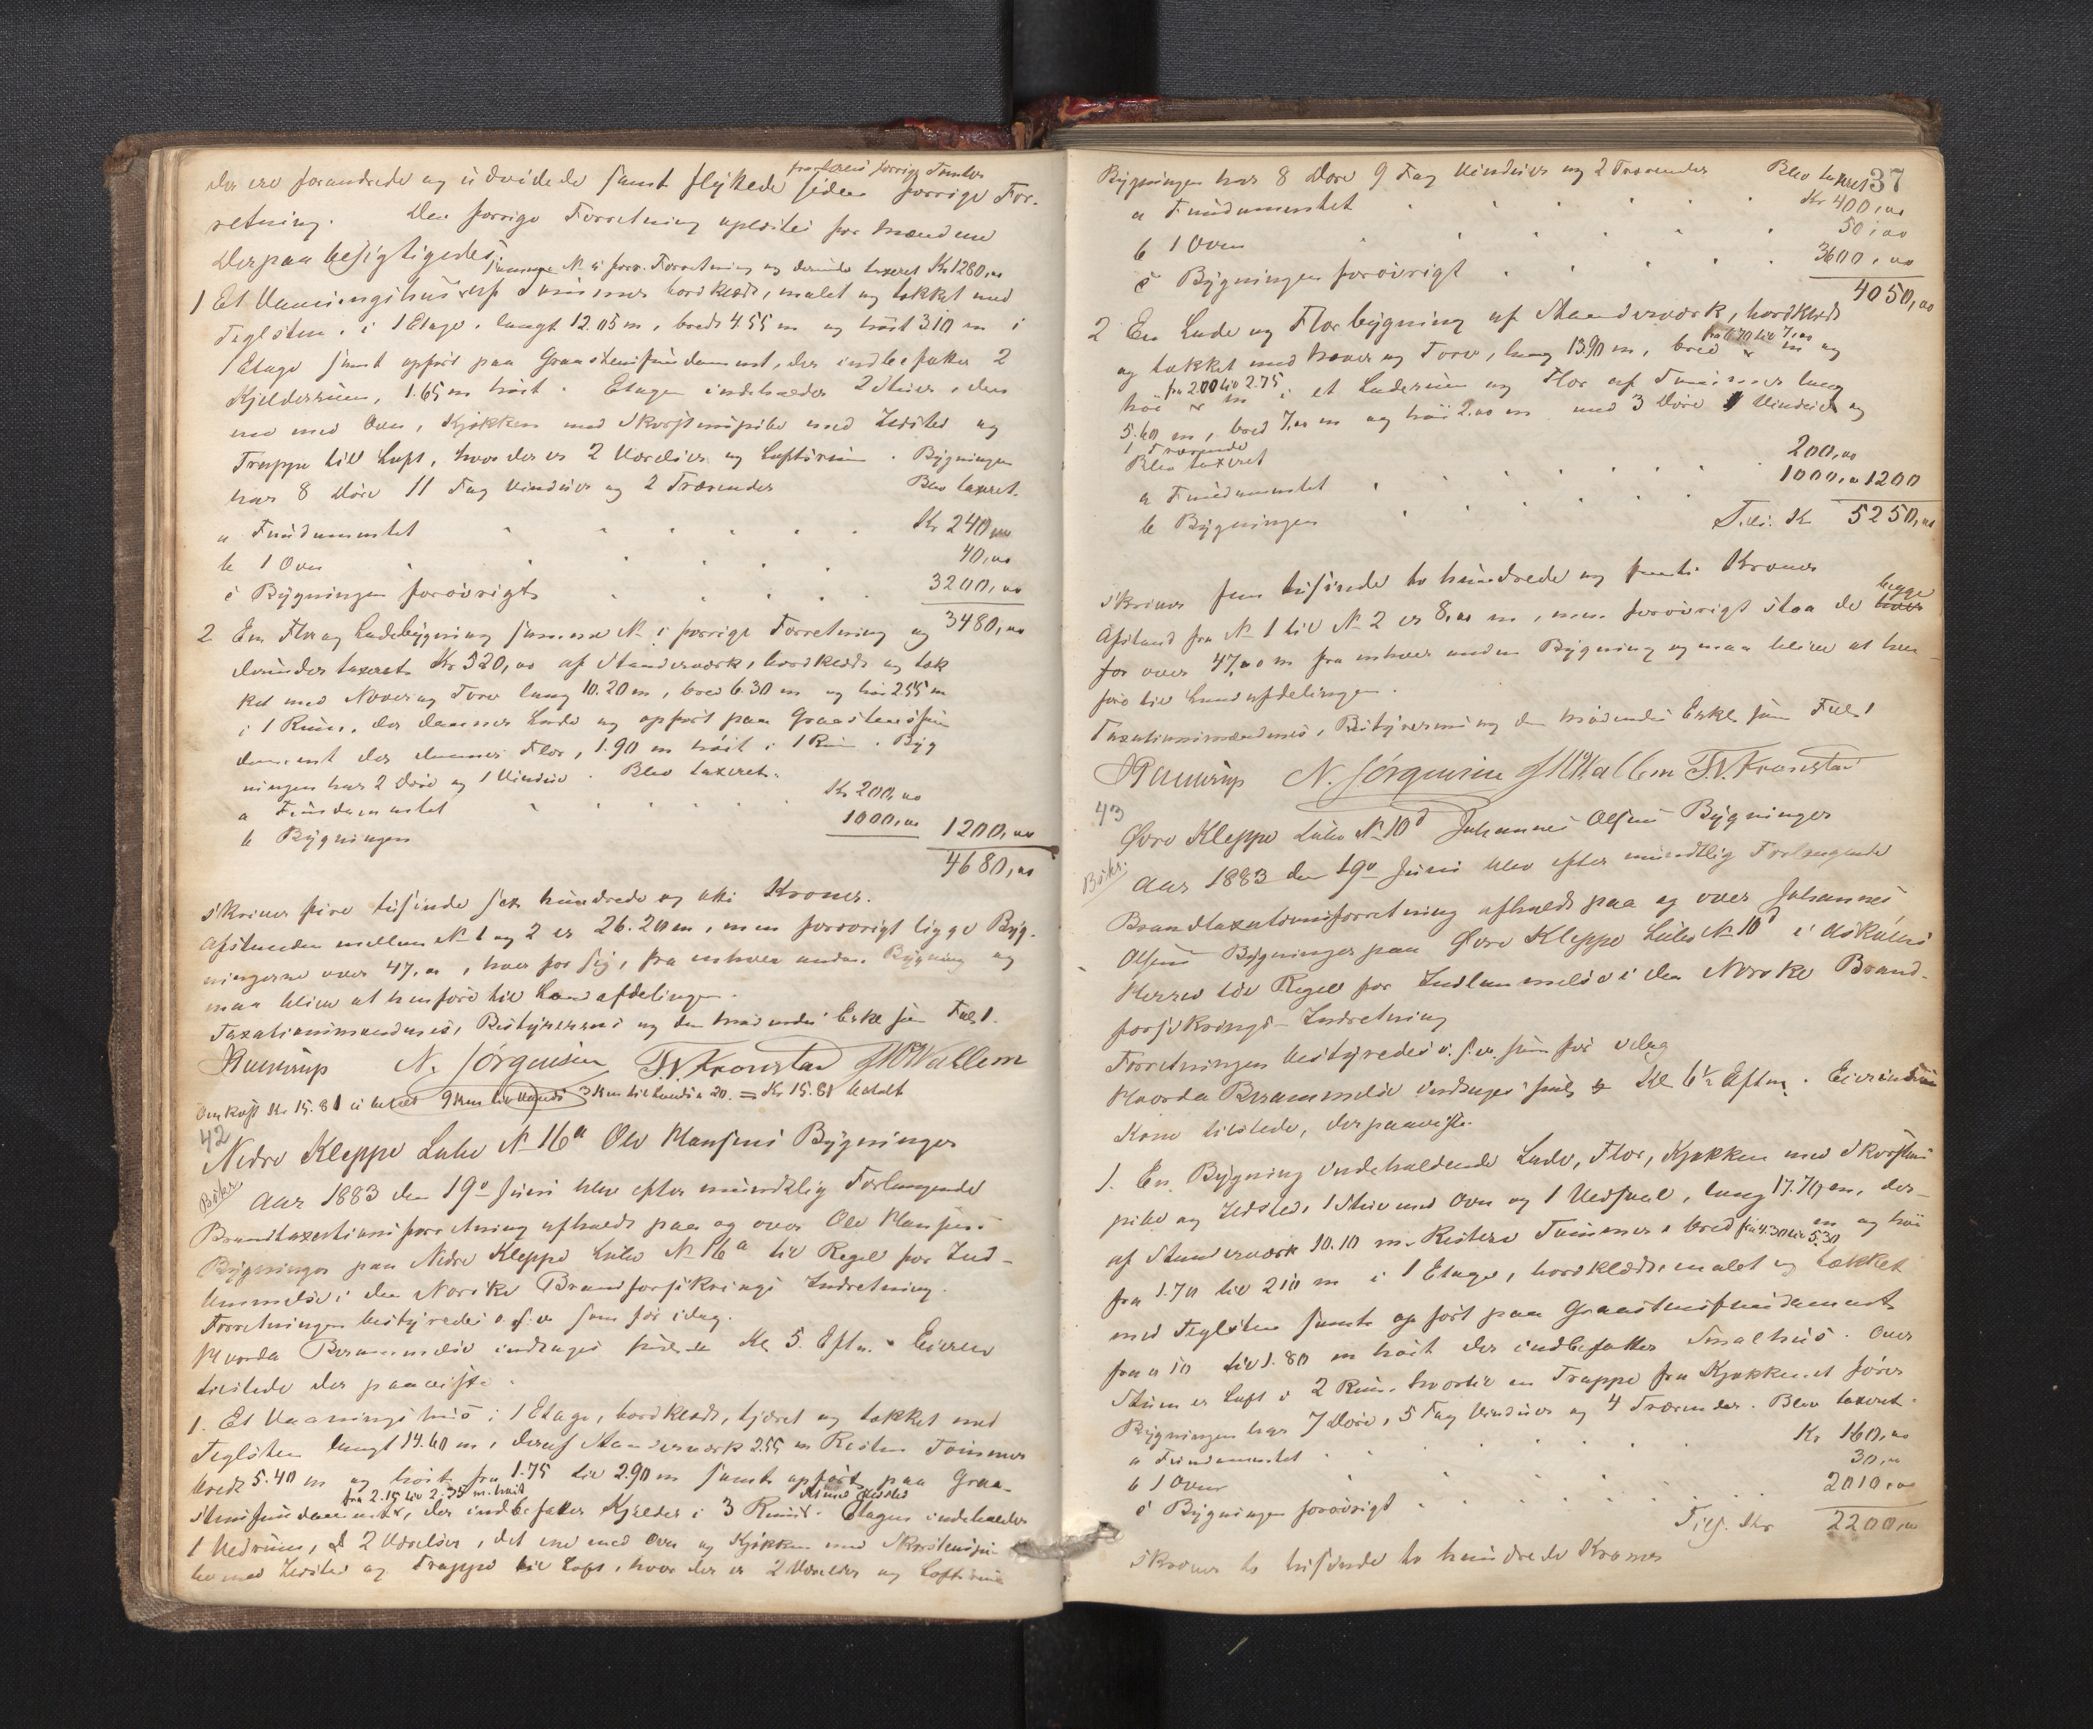 der ere forandrede og udvidede samt flyttede siden forrige For-
retning. Den forrige Forretning oplæstes for Mændene
Derpaa besigtigedes,
samme N. i forr. Forretning og derunder taxeret Kr 1280,00
1 Et Vaaningshus af Tømmer bordklædt, malet og tækket med
Teglsten, i 1 Etage, langt 12.05 m, bredt 4.55 m og høit 3.10 m i
1 Etage samt opført paa Graastensfundament, der indbefatter 2
Kjelderrum, 1.65 m høit. Etagen indeholder 2 Stuer, den
ene med Ovn, Kjøkken med Skorstenspibe med Ildsted og
Trappe til Loft, hvor der er 2 Værelser og Loftsrum. Bygningen
har 8 Døre 11 Fag Vinduer og 2 Trærender Blev taxeret.
a Fundamentet Kr 240,00
b 1 Ovn 40,00
c Bygningen forøvrigt 3200,00
3480,00
2 En Flor og Ladebygning samme N. i forrige Forretning og
derunder taxeret Kr 520,00 af Standerværk, bordklædt og tæk
ket med Næver og Torv lang 10.20 m, bred 6.30 m og høi 2.55 m
i 1 Rum, der danner Lade og opført paa Graastensfun
dament der danner Flor, 1.90 m høit i 1 Rum. Byg
ningen har 2 Døre og 1 Vindue. Blev taxeret.
a Fundamentet Kr 200,00
b Bygningen 1000,00 1200,00
4680,00
skriver fire tusinde sex hundrede og otti Kroner.
Afstanden mellem N. 1 og 2 er 26.20 m, men forøvrigt ligge Byg-
ningerne over 47,00, hver for sig, fra enhver anden Bygning og
maa blive at henføre til Landafdelingen.
Taxationsmændenes, Bestyrerens og den mødendes Erkl. som Fol. 1.
N. Jörgensen T.V. Kronstad Wallem
Omkost Kr 15.81 3 Km til Lands a 20. = Kr 15.81 betalt
42
Nedre Kleppe Lübe N. 16a Ole Hansens Bygninger
Aar 1883 den 19de Juni blev efter mundtlig Forlangende
Brandtaxationsforretning afholdt paa og over Ole Hansens
Bygninger paa Nedre Kleppe Lübe N. 16a til Regel for Ind-
lemmelse i den Norske Brandforsikrings Indretning.
Forretningen bestyredes o.s.v. som før idag.
Hvorda Berammelse indtages Kl 5. Eftm. Eieren
tilstede der paaviste.
1. Et Vaaningshus i 1 Etage, bordklædt, tjæret og tækket med
Teglsten langt 14.60 m, deraf Standerværk 2.55 m Resten Tømmer
bredt 5.40 m og høit fra 1.75 til 2.90 m samt opført paa Graa-
fra 2.15 til 2.35 m høit
stensfundament, der indbefatter Kjelder i 3 Rum. Etagen indeholder
1 Vedrum, 2 Værelser, det ene med Ovn og Kjøkken med Skorstenspi-
be med Ildsted og Trappe til Loft, hvor der er 2 Værelser og Loftsrum
37
Bygningen har 8 Døre 9 Fag Vinduer og 2 Trærender Blev taxeret
a Fundamentet Kr 400,00
b 1 Ovn 50,00
c Bygningen forøvrigt 3600,00
4050,00
2 En Lade og Florbygning af Standerværk, bordklædt
og tækket med Næver og Torv, lang 13.90 m, bred fra 6.70 til 7,00 m og
høi fra 2.00 til 2.75 m i et Laderum og Flor af Tømmer lang
5.60 m, bred 7,00 m og høi 2.00 m med 3 Døre 1 Vindue og
1 Trærende
Blev taxeret
a Fundamentet 200,00
b Bygningen 1000,00 1200
Tils. Kr 5250,00
skriver fem tusinde to hundrede og femti Kroner
Afstand fra N. 1 til N. 2 er 8,00 m, men forøvrigt staa de begge
for over 47,00 m fra enhver anden Bygning og maa blive at hen-
føre til Landafdelingen.
Taxationsmændenes, Bestyrerens og den mødendes Erkl. som Fol. 1
N. Jörgensen Wallem T.V. Kronstad
43
Øvre Kleppe Lübe N. 10d Johannes Olsens Bygninger
Aar 1883 den 19de Juni blev efter mundtlig Forlangende
Brandtaxationsforretning afholdt paa og over Johannes
Olsens Bygninger paa Øvre Kleppe Lübe N. 10d i Askøens
Herred til Regel for Indlemmelse i den Norske Brand-
forsikrings-Indretning
Forretningen bestyredes o.s.v. som før idag
Hvorda Berammelse indtages Kl 6½ Eftm. Eierinden
Kone tilstede, der paaviste.
1. En Bygning indeholdende Lade, Flor, Kjøkken med Skorstens
pibe og Ildsted, 1 Stue med Ovn og 1 Vedsval, lang 17.70 m, der-
af Standerværk 10.10 m. Resten Tømmer, bred fra 4.30 til 5.30 m og høi
fra 1.70 til 2.10 m i 1 Etage, bordklædt, malet og tækket
med Teglsten samt opført paa Graastensfundament
fra 0.10 til 1.80 m høit der indbefatter Smalhus. Over
Stuen er Loft i 2 Rum, hvortil en Trappe fra Kjøkkenet fører
Bygningen har 7 Døre, 5 Fag Vinduer og 4 Trærender. Blev taxeret.
a Fundamentet Kr 160,00
b 1 Ovn 30,00
c Bygningen forøvrigt 2010,00
Tils. Kr 2200,00
skriver to tusinde to hundrede Kroner